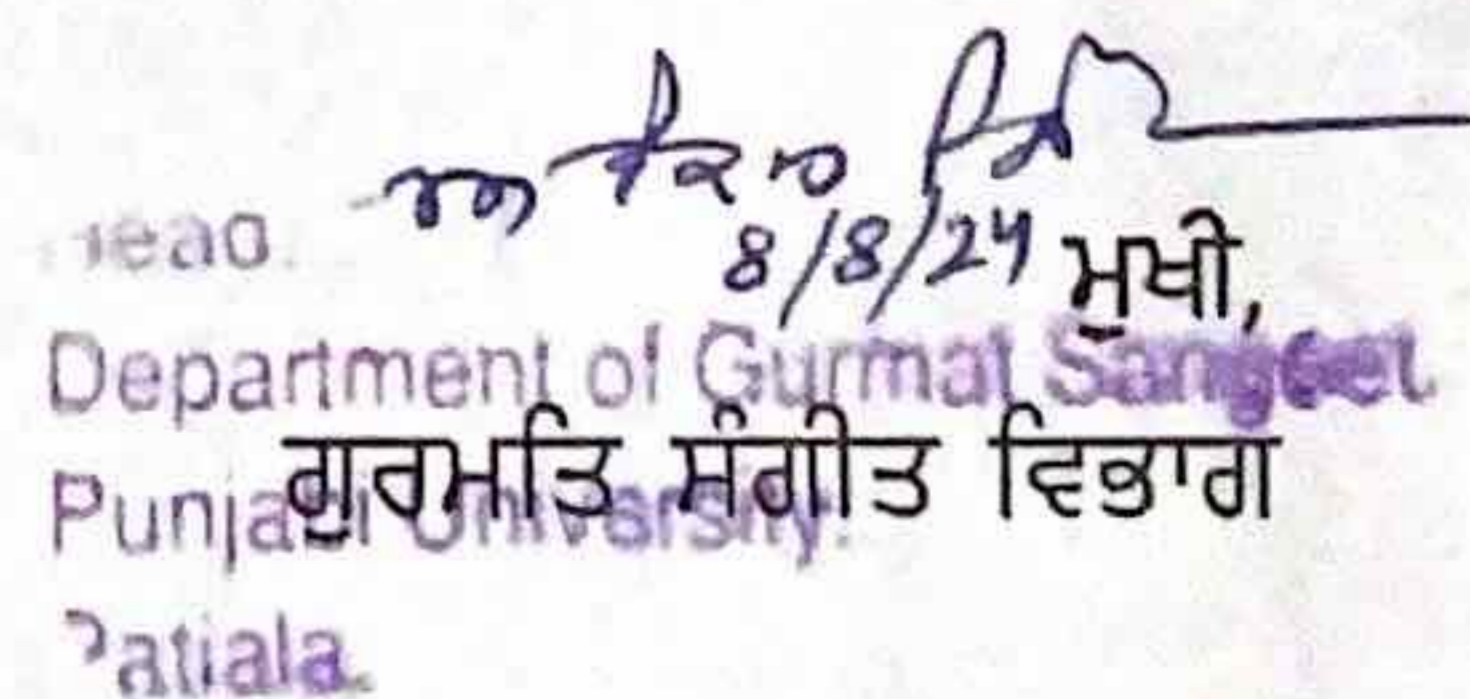 8/8/24
Head.
ਮੁਖੀ,
Department of Gurmat Sangeet
ਗੁਰਮਤਿ ਸੰਗੀਤ ਵਿਭਾਗ
Punjabi University.
Patiala.